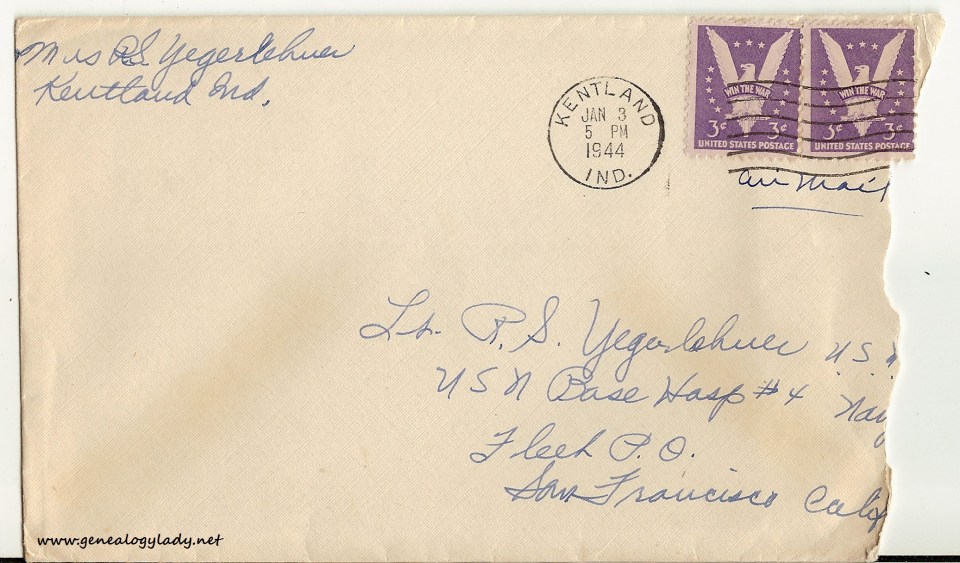 Mrs R.S. Yegerlehner
Kentland Ind.
KENTLAND
JAN 3
5 PM
1944
IND.
WIN THE WAR
3¢ 3¢
UNITED STATES POSTAGE
WIN THE WAR
3¢ 3¢
UNITED STATES POSTAGE
Air Mail
Lt. R. S. Yegerlehner U.S.N.
USN Base Hosp #4 Nav
Fleet P.O.
San Francisco Calif
www.genealogylady.net